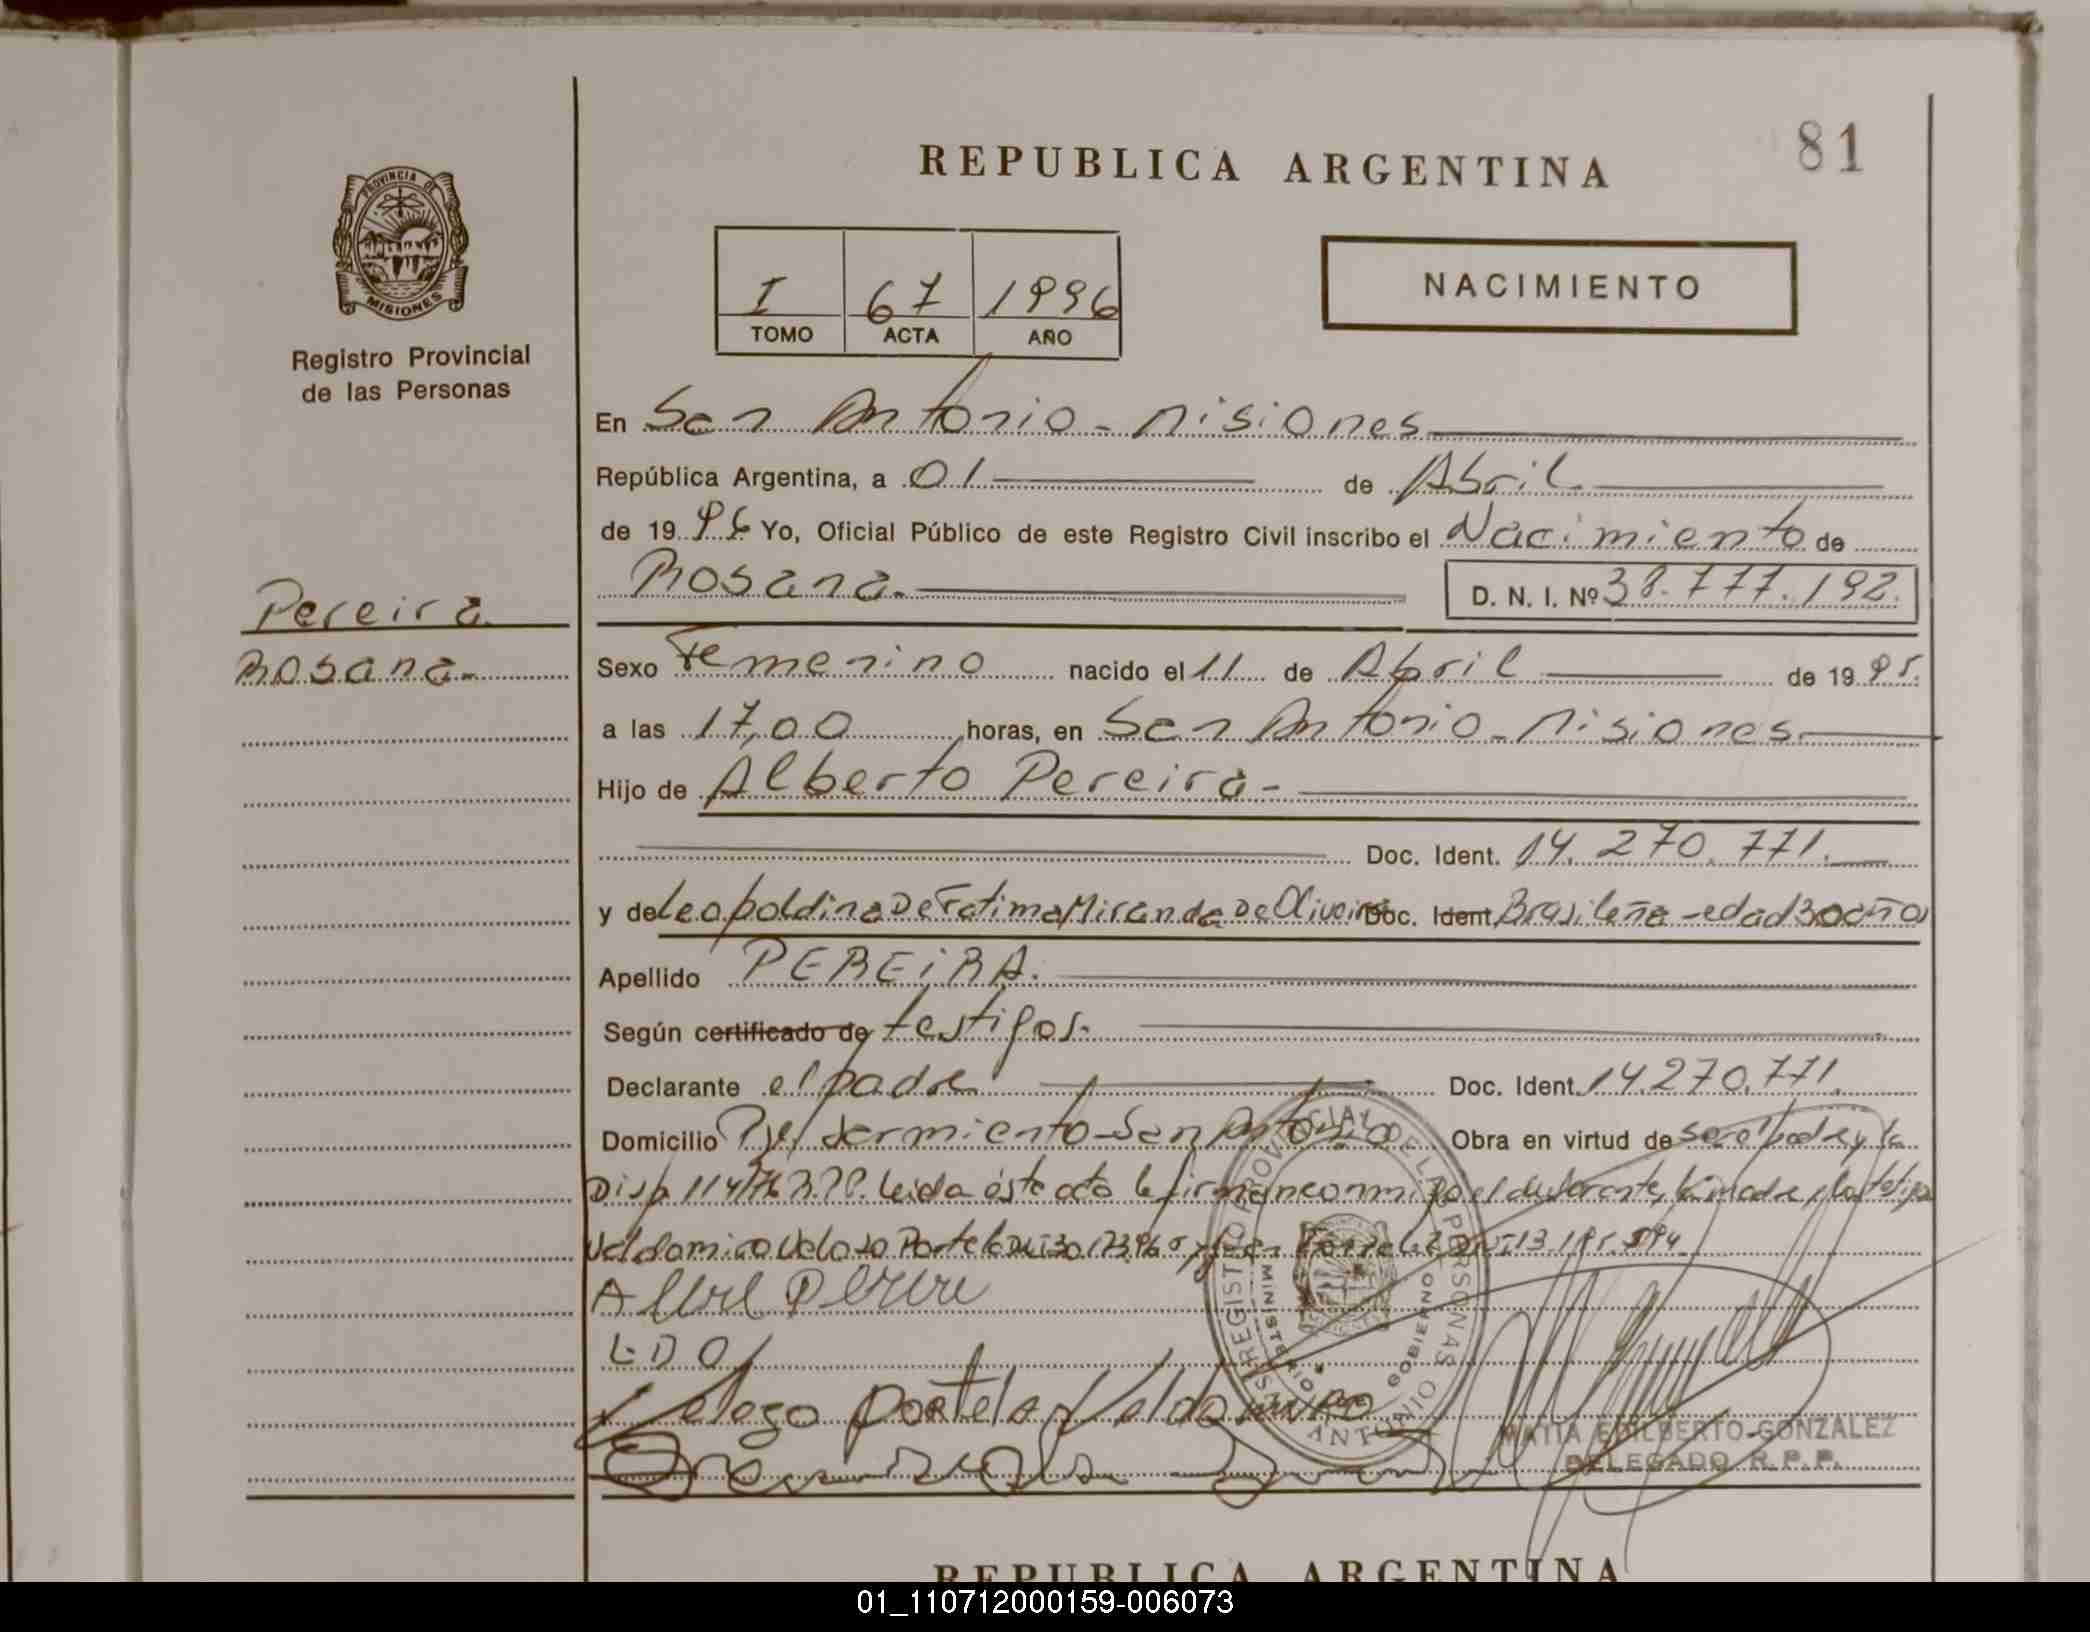 81
REPUBLICA ARGENTINA
PROVINCIA DE
MISIONES
Registro Provincial
de las Personas
I 67 1996
TOMO ACTA AÑO
NACIMIENTO
En San Antonio - Misiones
República Argentina, a 01 de Abril
de 1996 Yo, Oficial Público de este Registro Civil inscribo el Nacimiento de
Rosana. D. N. I. Nº 38.777.192.
Pereira
Rosana.
Sexo Femenino nacido el 11 de Abril de 1995.
a las 17,00 horas, en San Antonio - Misiones.
Hijo de Alberto Pereira -
Doc. Ident. 14.270.771.
y de Leopoldina De Fatima Miranda De Oliveira Doc. Ident. Brasileña - edad 30 años
Apellido PEREIRA.
Según certificado de testigos.
Declarante el padre Doc. Ident. 14.270.771.
Domicilio San Antonio Obra en virtud de ser el padre y la
Disp. 114/76 leida éste acta la firman conmigo el declarante, la madre,
Valdomiro Veloso Portela
LDO
Velozo portela Valdomiro
REGISTRO PROVINCIAL DE LAS PERSONAS
MINISTERIO GOBIERNO
SAN ANTONIO
MATIA EDILBERTO GONZALEZ
DELEGADO R. P. P.
REPUBLICA ARGENTINA
01_110712000159-006073